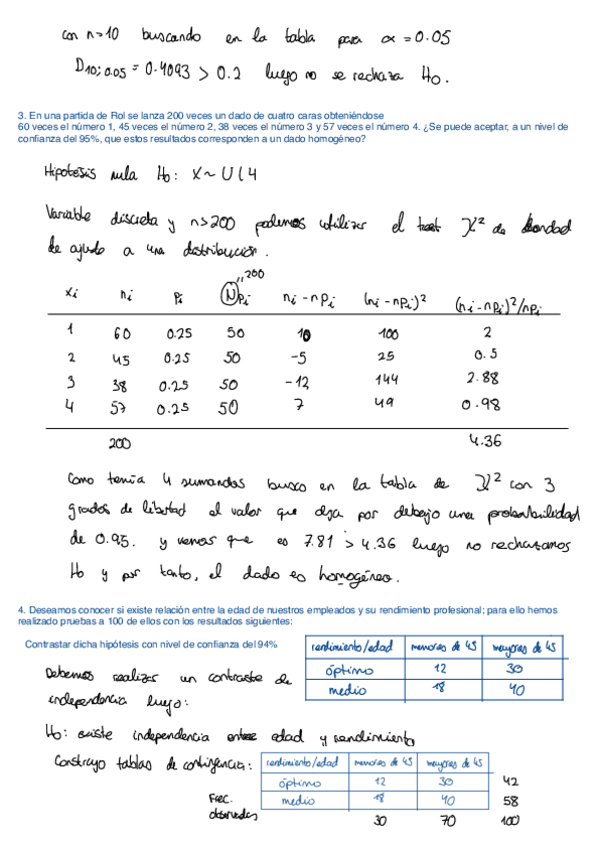 con n=10 buscando en la tabla para α = 0.05
D10;0.05 = 0.4093 > 0.2 luego no se rechaza H0.
3. En una partida de Rol se lanza 200 veces un dado de cuatro caras obteniéndose
60 veces el número 1, 45 veces el número 2, 38 veces el número 3 y 57 veces el número 4. ¿Se puede aceptar, a un nivel de
confianza del 95%, que estos resultados corresponden a un dado homogéneo?
Hipótesis nula H0: X ~ U(4
Variable discreta y n>200 podemos utilizar el test χ² de bondad
de ajuste a una distribución.
"200
xi ni pi Npi ni - npi (ni - npi)² (ni - npi)²/npi
1 60 0.25 50 10 100 2
2 45 0.25 50 -5 25 0.5
3 38 0.25 50 -12 144 2.88
4 57 0.25 50 7 49 0.98
200 4.36
Como tenía 4 sumandos busco en la tabla de χ² con 3
grados de libertad el valor que deja por debajo una probabilidad
de 0.95. y vemos que es 7.81 > 4.36 luego no rechazamos
H0 y por tanto, el dado es homogéneo.
4. Deseamos conocer si existe relación entre la edad de nuestros empleados y su rendimiento profesional; para ello hemos
realizado pruebas a 100 de ellos con los resultados siguientes:
Contrastar dicha hipótesis con nivel de confianza del 94%
rendimiento/edad menores de 45 mayores de 45
óptimo 12 30
medio 18 40
Debemos realizar un contraste de
independencia luego:
H0: existe independencia entre edad y rendimiento
Construyo tablas de contingencia:
rendimiento/edad menores de 45 mayores de 45
óptimo 12 30 42
Frec. medio 18 40 58
observadas 30 70 100